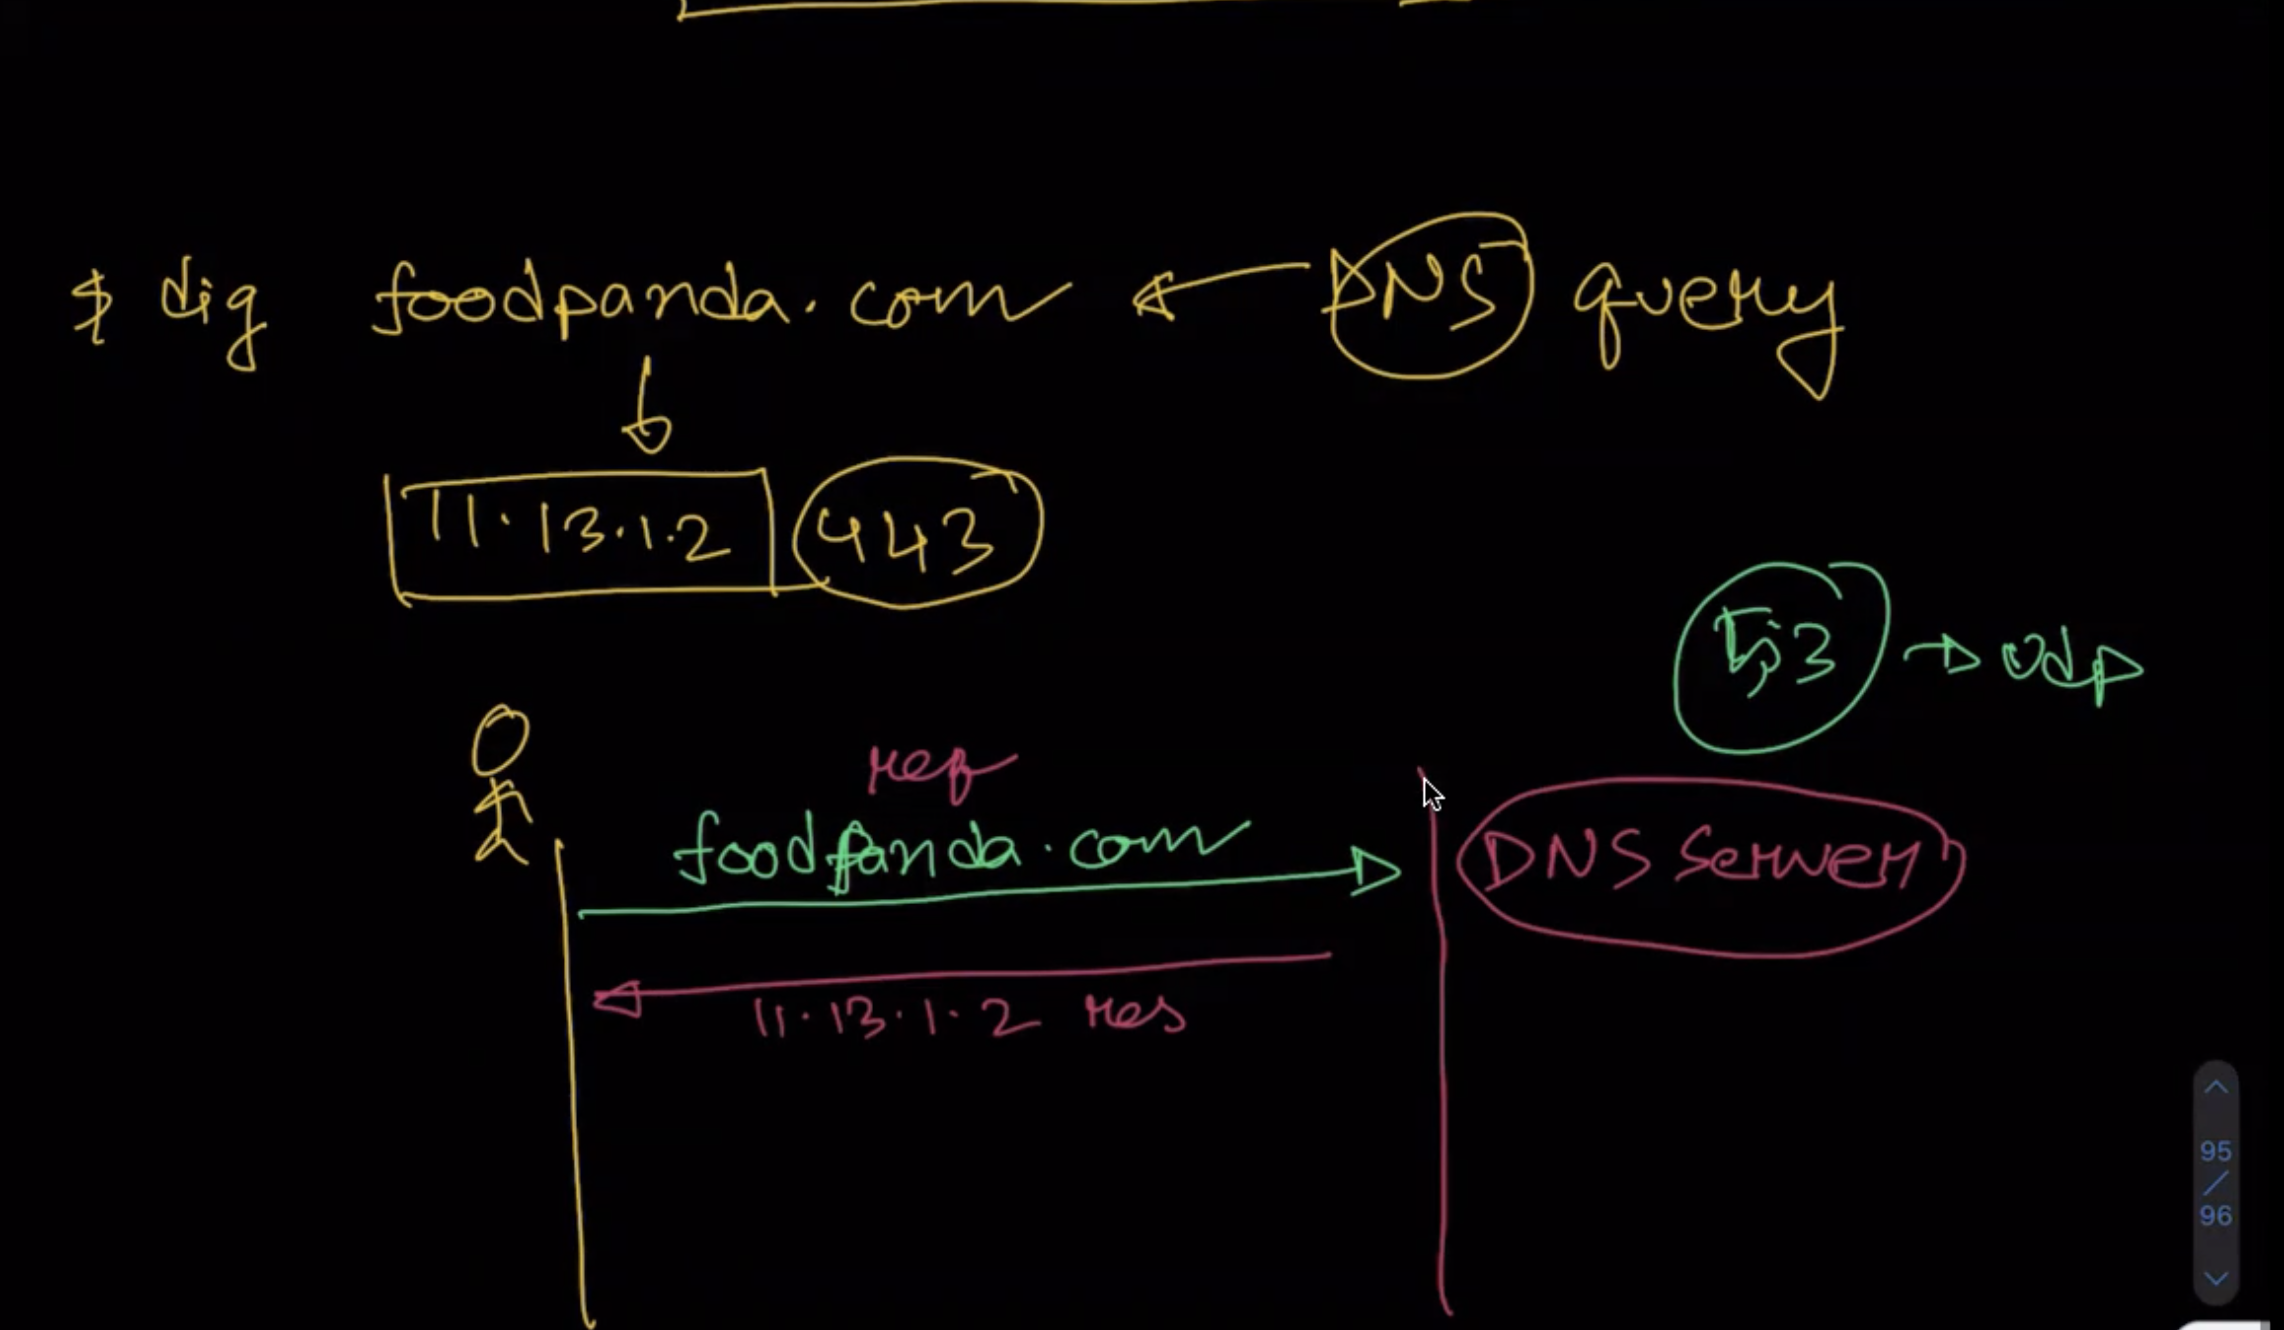 $ dig foodpanda.com ← DNS query
11.13.1.2 443
53 → udp
req
foodpanda.com
DNS Server
11.13.1.2 res
95
/
96